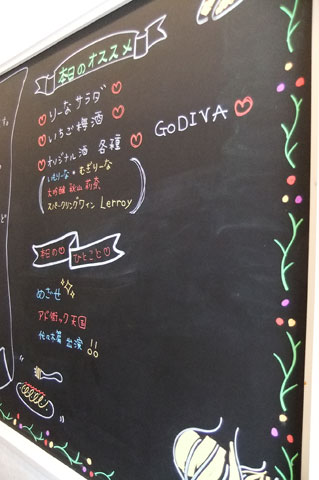 本日のオススメ
りーなサラダ
いちご梅酒
GODIVA
オリジナル酒 各種
いもりーな・むぎりーな
大吟醸 秋山莉奈
スパークリングワイン Lerroy
本日の
ひとこと
めざせ
アド街ック天国
代々木篇 出演!!